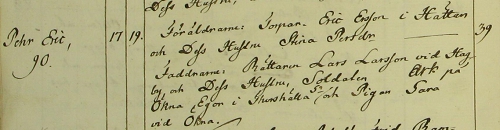 Dess Hustru,
Pehr Eric, 17 19. Föräldrarne: Torpar. Eric Ersson i Hättan
och Dess Hustru Stina Persdr 39
90. Faddrarne: Rättaren Lars Larsson vid Hag-
by, och Dess Hustru, Soldaten Ark på
Ökna Egor i och Pigan Sara
vid Ökna.